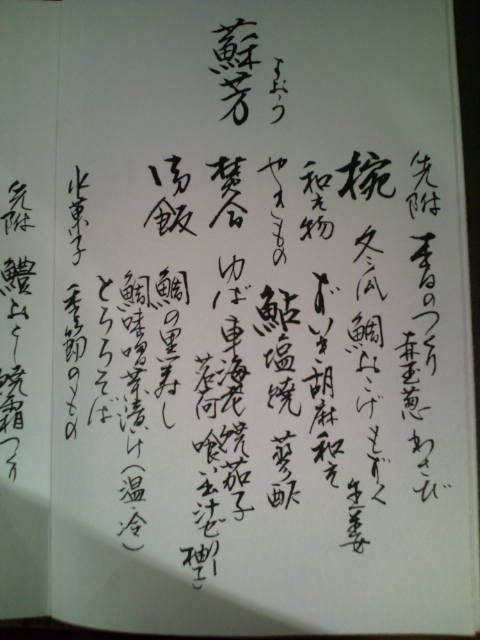 蘇芳
すおう
先附 本日のつくり
芽葱 わさび
椀 冬瓜 鯛おこげ もずく
生姜
和え物 ずいき胡麻和え
やきもの 鮎塩焼 蓼酢
焚合 ゆば 車海老 焼茄子
茗荷 喰い出汁ゼリー
柚子
御飯 鯛の黒寿し
鯛味噌茶漬け(温・冷)
とろろそば
水菓子 季節のもの
先附 鱧おとし 焼霜つくり